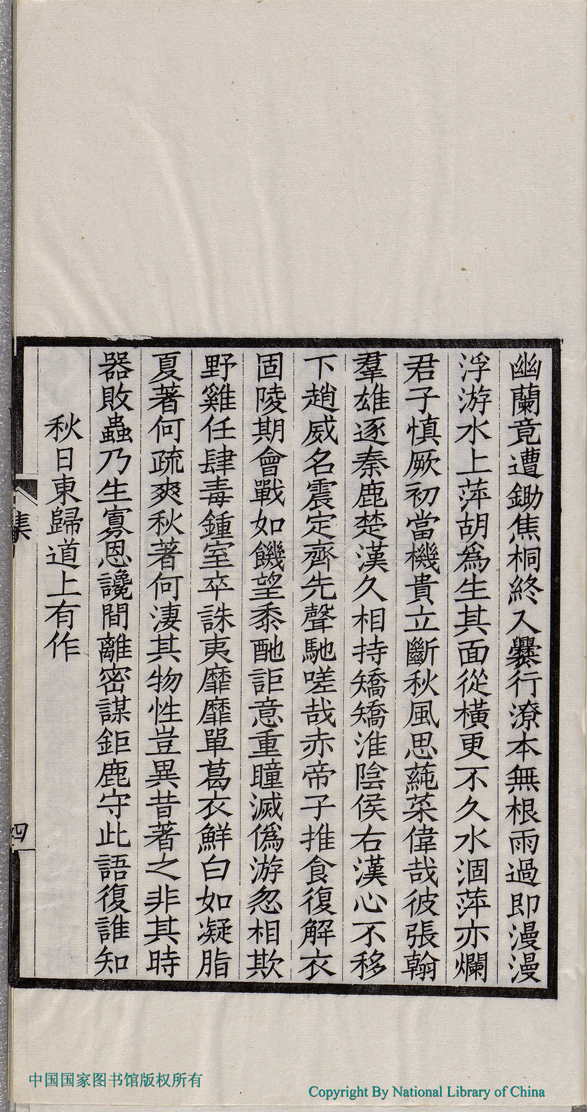 幽蘭竟遭鋤焦桐終入爨行潦本無根雨過即漫漫
浮游水上萍胡為生其面從橫更不久水涸萍亦爛
君子慎厥初當機貴立斷秋風思蒓菜偉哉彼張翰
羣雄逐秦鹿楚漢久相持矯矯淮陰侯右漢心不移
下趙威名震定齊先聲馳嗟哉赤帝子推食復解衣
固陵期會戰如饑望黍酏詎意重瞳滅僞游忽相欺
野雞任肆毒鍾室卒誅夷靡靡單葛衣鮮白如凝脂
夏著何疏爽秋著何淒其物性豈異昔著之非其時
器敗蟲乃生寡恩讒間離密謀鉅鹿守此語復誰知
秋日東歸道上有作
集
四
中国国家图书馆版权所有
Copyright By National Library of China